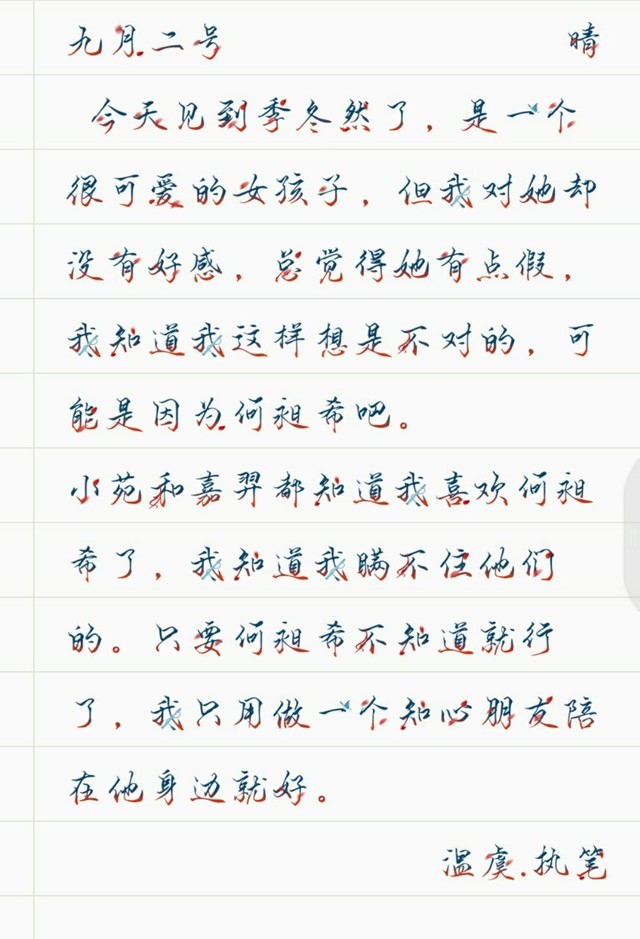 九月二号 晴
今天见到季冬然了，是一个
很可爱的女孩子，但我对她却
没有好感，总觉得她有点假，
我知道我这样想是不对的，可
能是因为何昶希吧。
小苑和嘉羿都知道我喜欢何昶
希了，我知道我瞒不住他们
的。只要何昶希不知道就行
了，我只用做一个知心朋友陪
在他身边就好。
温虞.执笔